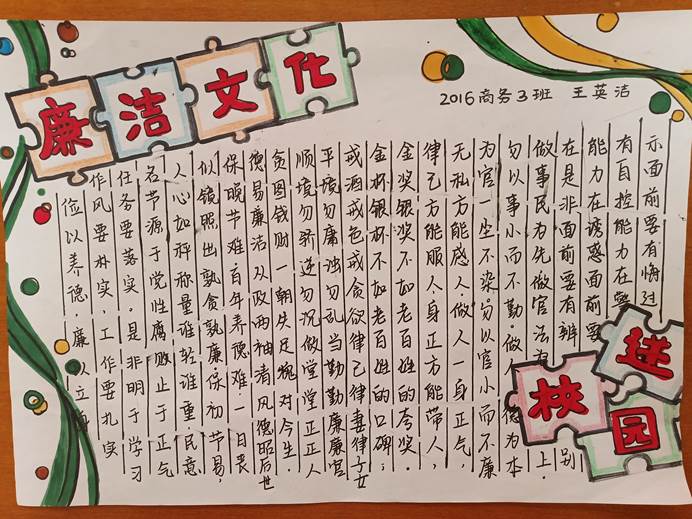 廉洁文化
2016商务3班 王英洁
俭以养德,廉以立
作风要朴实,工作要扎实
任务要落实。是非明于学习
名节源于党性腐败止于正气
人心如秤称量谁轻谁重民意
似镜照出孰贪孰廉保初节易,
保晚节难百年养德难一日畏
德易廉洁从政两袖清风德昭后世
贪图钱财一朝失足愧对今生.
顺境勿骄逆勿沉做堂堂正正人
平境勿庸浊勿乱当勤勤廉廉官
戒酒戒色戒贪欲律己律妻律子女
金杯银杯不如老百姓的口碑;
金奖银奖不如老百姓的夸奖.
律己方能服人身正方能带人,
无私方能感人做人一身正气,
为官一尘不染勿以官小而不廉
勿以事小而不勤.做德为本
做事民为先做官法上.
在是非面前要有辨别
能力在诱惑面前要
有自控能力在
示面前要有悔过
迷
校园